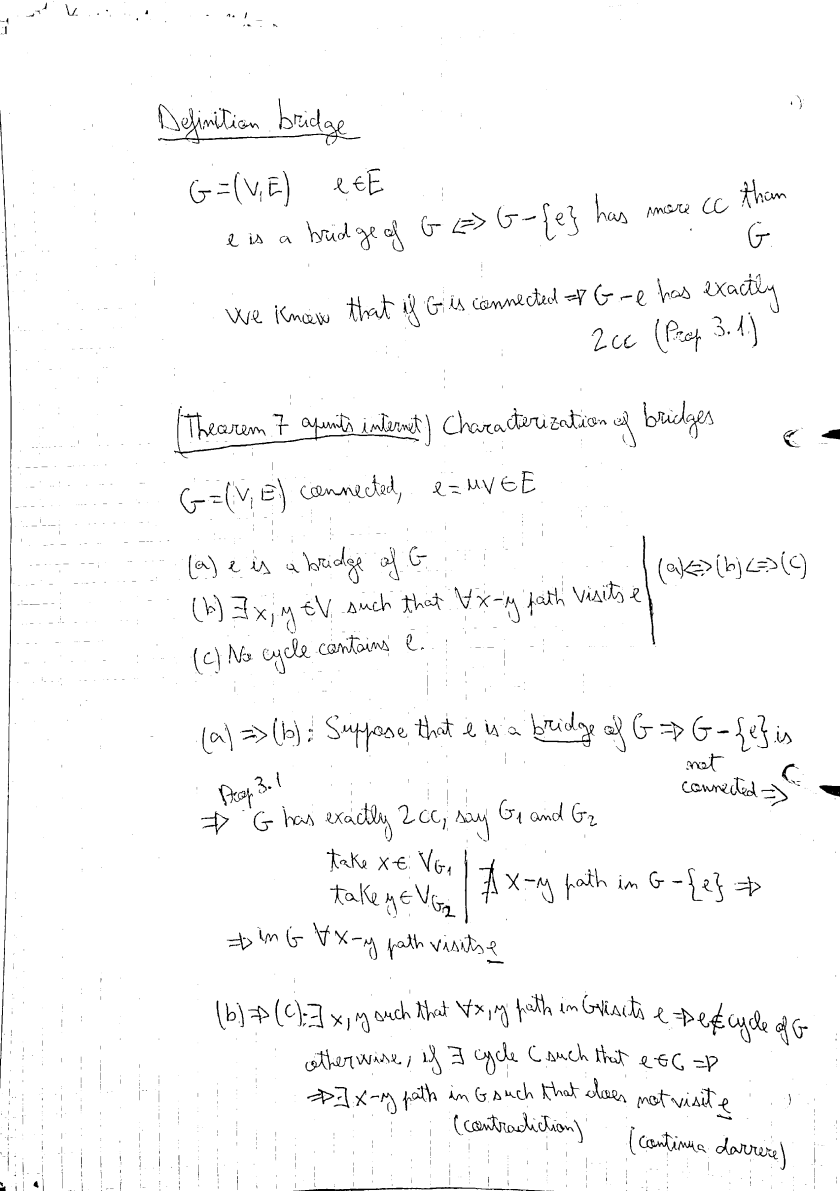 Definition bridge
G=(V,E) e∈E
e is a bridge of G ⇔ G-{e} has more cc than
G
We know that if G is connected ⇒ G-e has exactly
2cc (Prop 3.1)
(Theorem 7 apunts internet) Characterization of bridges
G=(V,E) connected, e=uv∈E
(a) e is a bridge of G
(b) ∃x,y∈V such that ∀x-y path visits e | (a)⇔(b)⇔(c)
(c) No cycle contains e.
(a)⇒(b): Suppose that e is a bridge of G ⇒ G-{e} is
not
connected ⇒
Prop 3.1
⇒ G has exactly 2cc, say G1 and G2
take x∈ V_G1
take y∈V_G2 | ∄ x-y path in G-{e} ⇒
⇒ in G ∀x-y path visits e
(b)⇒(c): ∃x,y such that ∀x,y path in G visits e ⇒ e∉cycle of G
otherwise, if ∃ cycle C such that e∈C ⇒
⇒∃ x-y path in G such that does not visit e
(contradiction) (continua darrere)